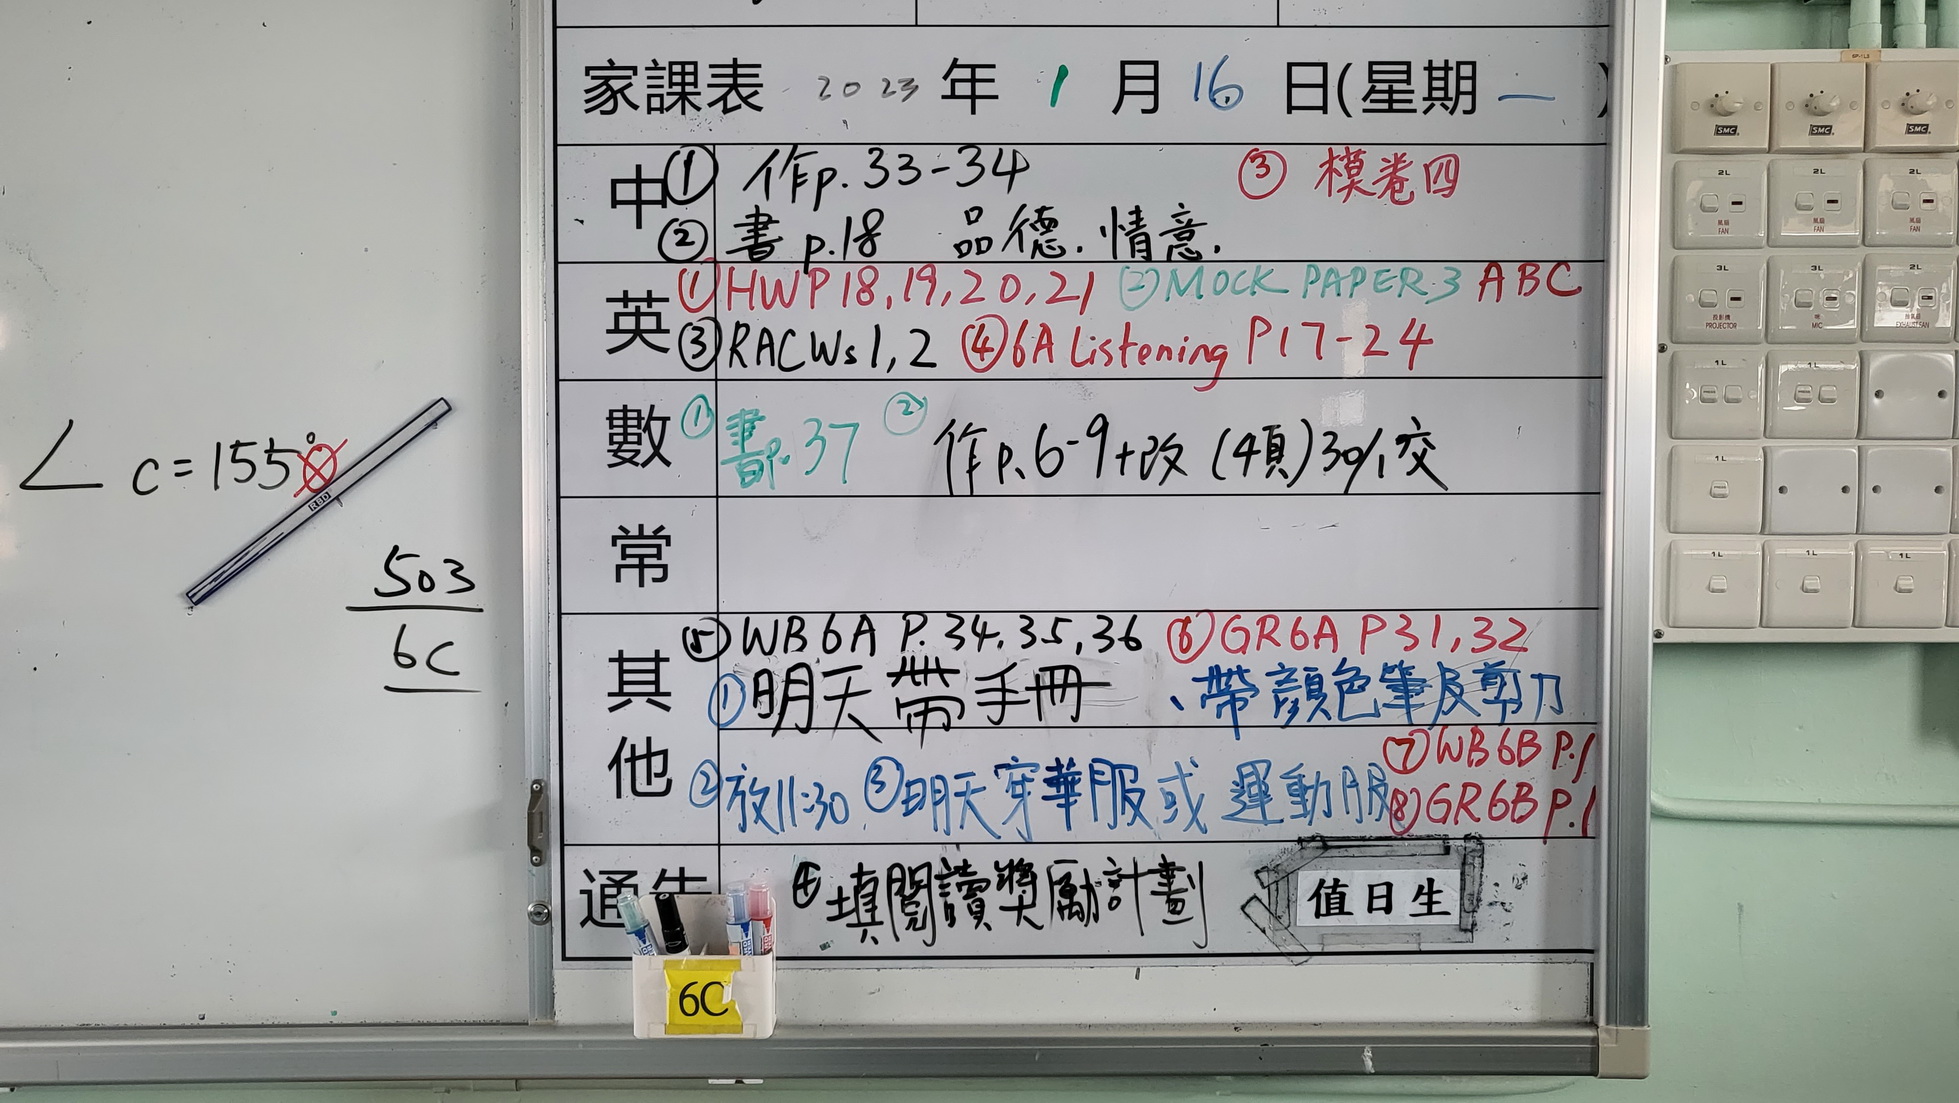 家課表 2023 年 1 月 16 日(星期 一 )
中 ① 作p.33-34 ③ 模卷四
② 書 p.18 品德.情意.
英 ① HWP18,19,20,21 ② MOCK PAPER 3 ABC
③ RACWs1,2 ④ 6A Listening P17-24
數 ① 書p.37 ② 作p.6-9+改 (4頁)30/1交
常
其他 ⑤ WB6A P.34,35,36 ⑥ GR6A P31,32
① 明天帶手冊 、帶顏色筆及剪刀
⑦ WB6B P.1
② 放11:30 ③ 明天穿華服或運動服 ⑧ GR6B p.1
通告 ④ 填閱讀獎勵計劃 值日生
6C
∠ c=155°
RBD
503
6C
SMC SMC SMC
2L 2L 2L
風扇 風扇 風扇
FAN FAN FAN
3L 3L 2L
投影機 咪 抽氣扇
PROJECTOR MIC EXHAUST FAN
1L 1L
1L
1L 1L 1L